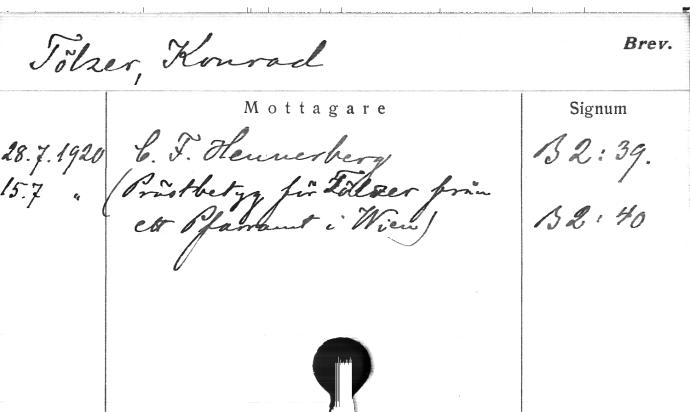 Tölzer, Konrad
Brev.
Mottagare
Signum
28.7.1920 C. F. Hennerberg B 2:39.
15.7 " (Prästbetyg för Tölzer från
ett Pfarramt i Wien) B 2:40